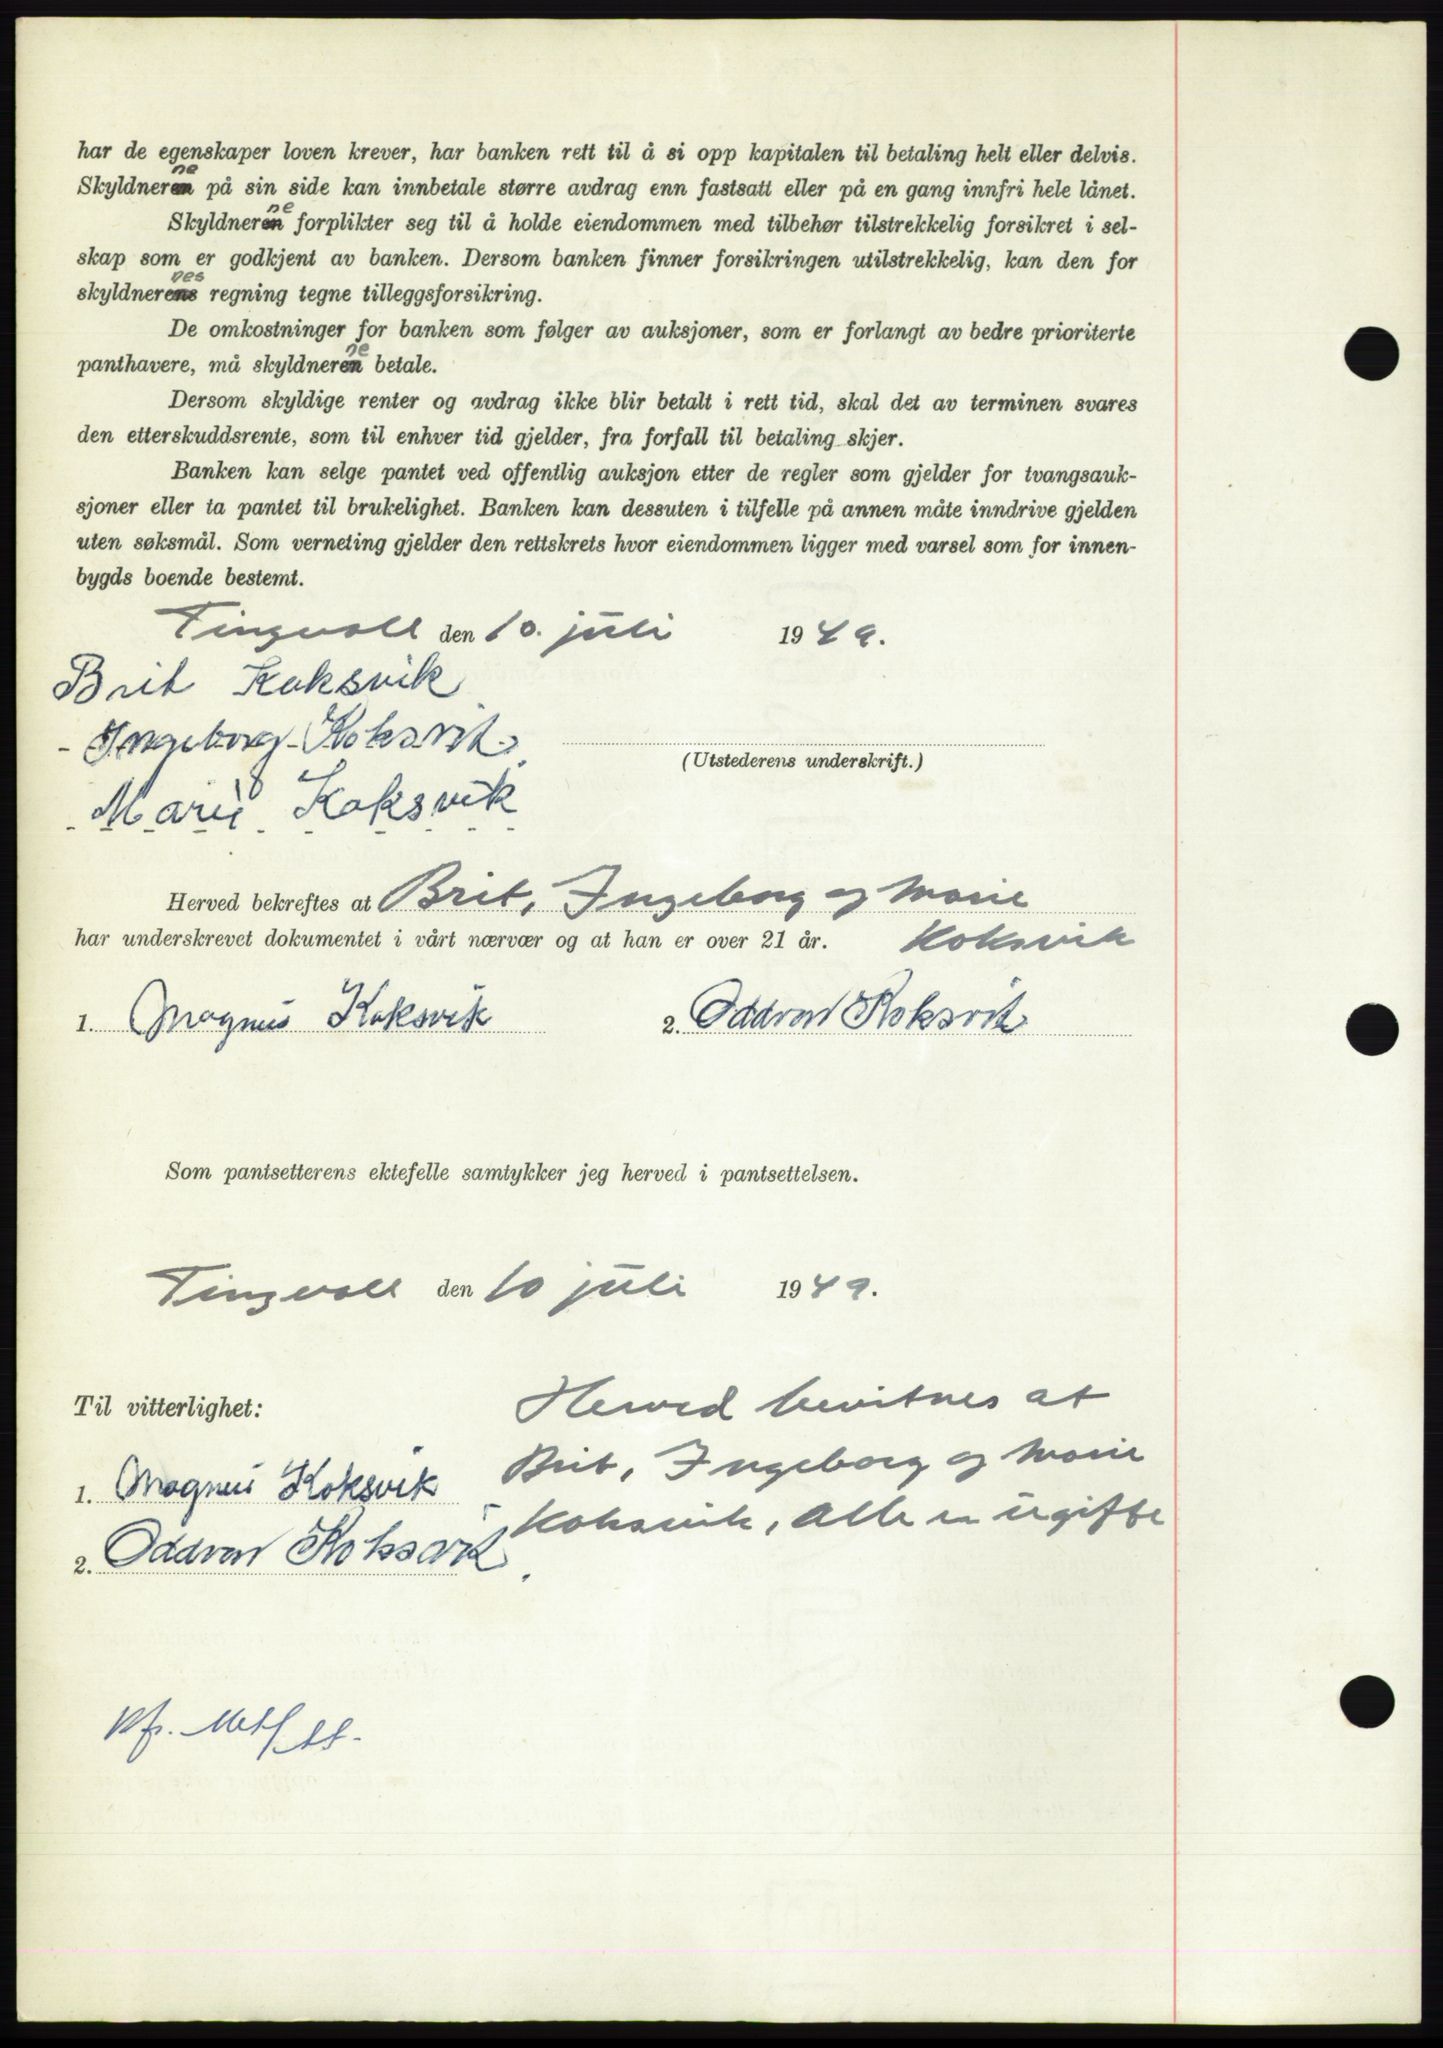 har de egenskaper loven krever, har banken rett til å si opp kapitalen til betaling helt eller delvis.
Skyldnerene på sin side kan innbetale større avdrag enn fastsatt eller på en gang innfri hele lånet.
Skyldnerene forplikter seg til å holde eiendommen med tilbehør tilstrekkelig forsikret i sel-
skap som er godkjent av banken. Dersom banken finner forsikringen utilstrekkelig, kan den for
skyldnerenes regning tegne tilleggsforsikring.
De omkostninger for banken som følger av auksjoner, som er forlangt av bedre prioriterte
panthavere, må skyldnerene betale.
Dersom skyldige renter og avdrag ikke blir betalt i rett tid, skal det av terminen svares
den etterskuddsrente, som til enhver tid gjelder, fra forfall til betaling skjer.
Banken kan selge pantet ved offentlig auksjon etter de regler som gjelder for tvangsauk-
sjoner eller ta pantet til brukelighet. Banken kan dessuten i tilfelle på annen måte inndrive gjelden
uten søksmål. Som verneting gjelder den rettskrets hvor eiendommen ligger med varsel som for innen-
bygds boende bestemt.
Tingvoll den 10. juli 1949.
Brit Koksvik
Ingeborg Koksvik.
(Utstederens underskrift.)
Marie Koksvik
Herved bekreftes at Brit, Ingeborg og Marie
har underskrevet dokumentet i vårt nærvær og at han er over 21 år. Koksvik
1. Magnus Koksvik 2. Oddvar Koksvik
Som pantsetterens ektefelle samtykker jeg herved i pantsettelsen.
Tingvoll den 10 juli 1949.
Til vitterlighet:
Herved bevitnes at
Brit, Ingeborg og Marie
1. Magnus Koksvik
Koksvik, alle er ugifte
2. Oddvar Koksvik.